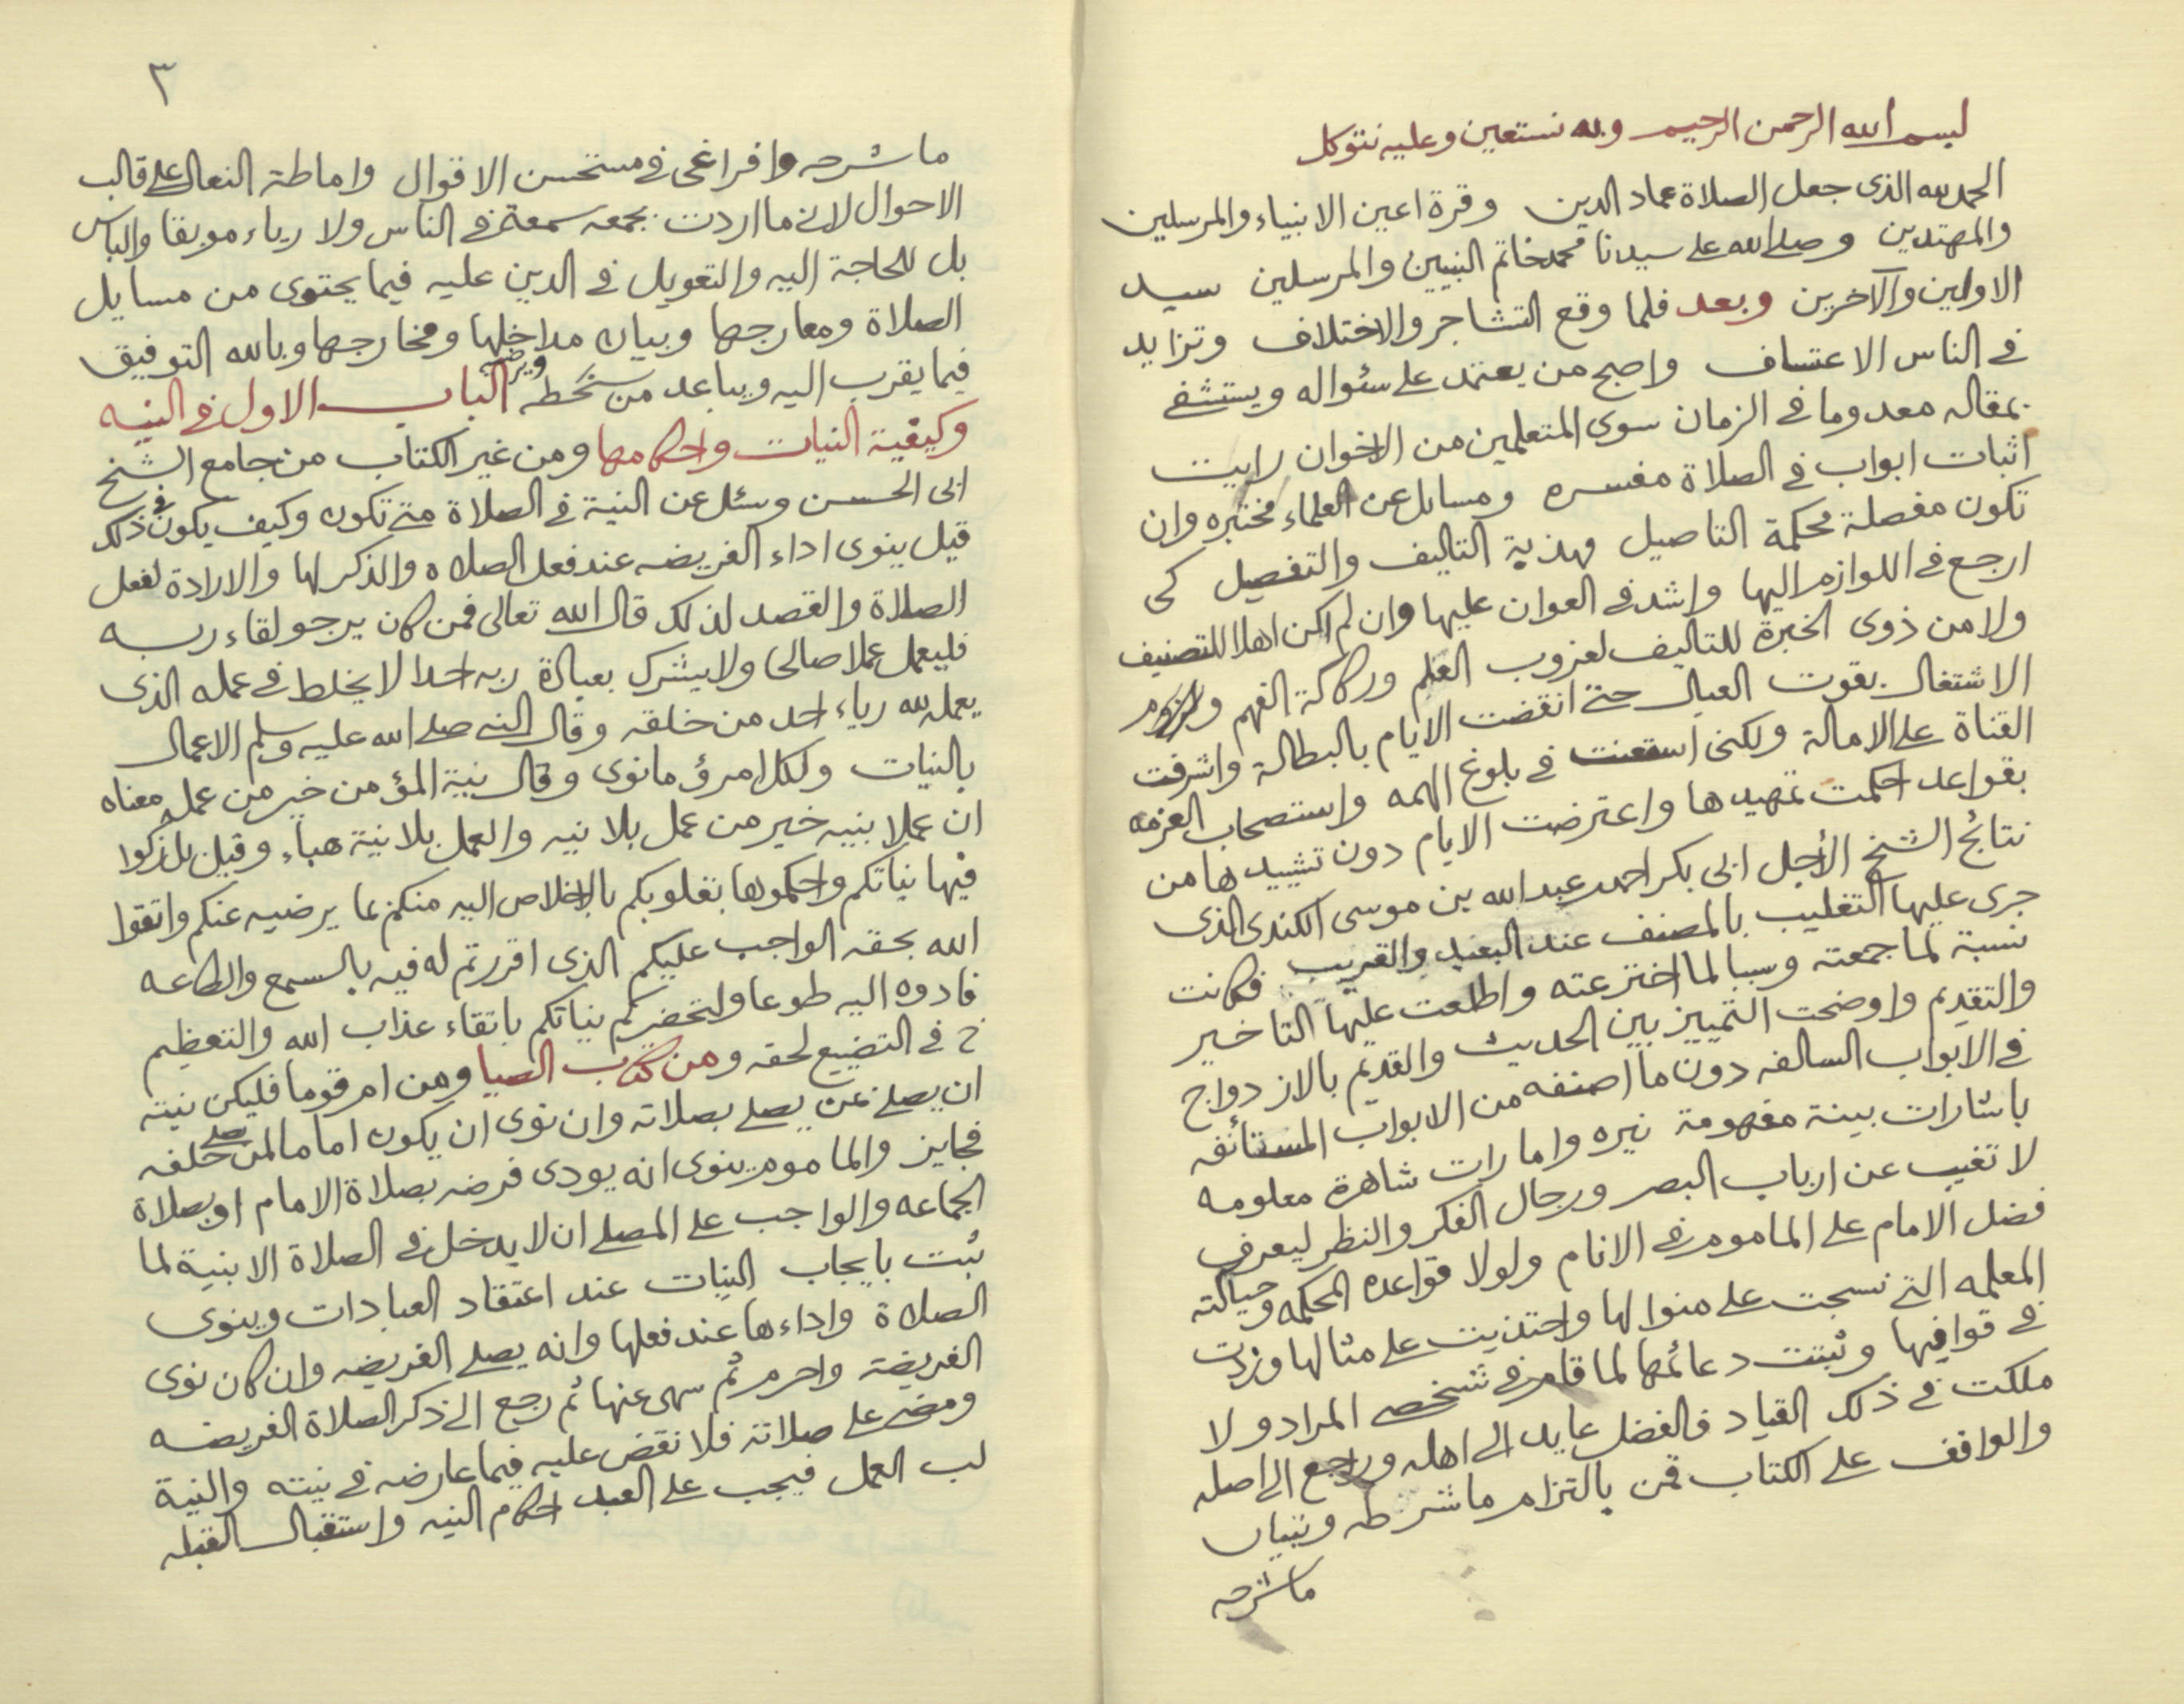 بسم الله الرحمن الرحيم وبه نستعين وعليه نتوكل
الحمد لله الذى جعل الصلاة عماد الدين وقرة اعين الانبياء والمرسلين
والمهتدين وصلى الله على سيدنا محمد خاتم النبيين والمرسلين سيد
الاولين والآخرين وبعد فلما وقع التشاجر والاختلاف وتزايد
فى الناس الاعتساف واصبح من يعتمد على سئواله ويستشفى
بمقاله معدوما فى الزمان سوى المتعلمين من الاخوان رايت
اثبات ابواب فى الصلاة مفسره ومسايل عن العلماء مختبره وان
تكون مفصلة محكمة التاصيل مهذبة التاليف والتفصيل كى
ارجع فى اللوازم اليها واشد فى العوان عليها وان لم اكن اهلا للتصنيف
ولا من ذوى الخبرة للتاليف لعزوب العلم وركاكة الفهم ولزوم
الاشتغال بقوت العيال حتى انقضت الايام بالبطالة واشرفت
القناة على الامالة ولكنى استعنت فى بلوغ الهمه واستصحاب العزمه
بقواعد احكمت تمهيدها واعترضت الايام دون تشييدها من
نتائج الشيخ الأجل ابى بكر احمد عبد الله بن موسى الكندى الذى
جرى عليها التغليب بالمصنف عند البعيد والقريب فكانت
نسبة لما جمعته وسببا لما اخترعته واطلعت عليها التاخير
والتقديم واوضحت التمييز بين الحديث والقديم بالازدواج
فى الابواب السالفه دون ما اصنفه من الابواب المستائفه
باشارات بينة مفهومة نيره وامارات شاهرة معلومه
لا تغيب عن ارباب البصر ورجال الفكر والنظر ليعرف
فضل الامام على الماموم فى الانام ولولا قواعده المحكمه وحياكته
المعلمه التى نسجت على منوالها واحتذيت على مثالها وزدت
فى قوافيها وثبتت دعائمها لما قام فى شخصى المراد ولا
ملكت فى ذلك القياد فالفضل عايد الى اهله وراجع الى اصله
والواقف على الكتاب قمن بالتزام ما شرطه وتبيان
ما شرحه
٣
ما شرحه وافراغى فى مستحسن الاقوال واماطة النعال على قالب
الاحوال لانى ما اردت بجمعه سمعة فى الناس ولا رياء موبقا والباس
بل للحاجة اليه والتعويل فى الدين عليه فيما يحتوى من مسايل
الصلاة ومعارجها وبيان مداخلها ومخارجها وبالله التوفيق
فيما يقرب اليه ويباعد من سخطه الباب الاول فى النيه
وكيفية النيات واحكامها ومن غير الكتاب من جامع الشيخ
ابى الحسن وسئل عن النية فى الصلاة متى تكون وكيف يكون فى ذلك
قيل ينوى اداء الفريضه عند فعل الصلاه والذكر لها والارادة لفعل
الصلاة والقصد لذلك قال الله تعالى فمن كان يرجو لقاء ربه
فليعمل عملا صالحا ولا يشرك بعبادة ربه احدا لا يخلط فى عمله الذى
يعمله لله رياء احد من خلقه وقال النبى صلى الله عليه وسلم الاعمال
بالنيات ولكل امرؤ ما نوى وقال نية المؤمن خير من عمله معناه
ان عملا بنيه خير من عمل بلا نيه والعمل بلا نية هباء وقيل بل ذكوا
فيها نياتكم واحكموها بقلوبكم بالاخلاص اليه منكم بما يرضيه عنكم واتقوا
الله بحقه الواجب عليكم الذى اقررتم له فيه بالسمع والطاعه
فادوه اليه طوعا ولتحضركم نياتكم باتقاء عذاب الله والتعظيم
فى التضييع لحقه ومن كتاب الصيا ومن ام قوما فليكن نيته
ان يصلى بمن يصلى بصلاته وان نوى ان يكون اماما لمن يصلى خلفه
فجايز والماموم ينوى انه يودى فرضه بصلاة الامام او بصلاة
الجماعه والواجب على المصلى ان لا يدخل فى الصلاة الا بنية لما
ثبت بايجاب النيات عند اعتقاد العبادات وينوى
الصلاة واداءها عند فعلها وانه يصلى الفريضه وان كان نوى
الفريضة واحرم ثم سهى عنها ثم رجع الى ذكر الصلاة الفريضه
ومضى على صلاته فلا نقض عليه فيما عارضه فى نيته والنية
لب العمل فيجب على العبد احكام النيه واستقبال القبله